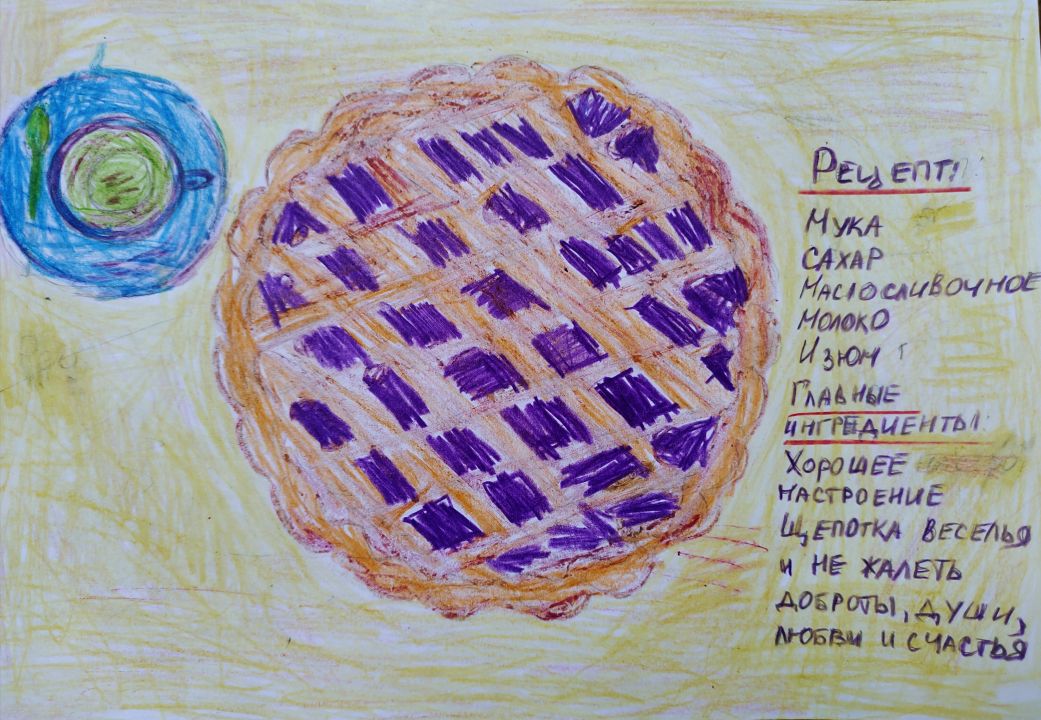 Рецепт:
Мука
сахар
Масло сливочное
Молоко
Изюм
Главные
ингредиенты:
Хорошее
настроение
Щепотка веселья
и не жалеть
доброты, души,
любви и счастья